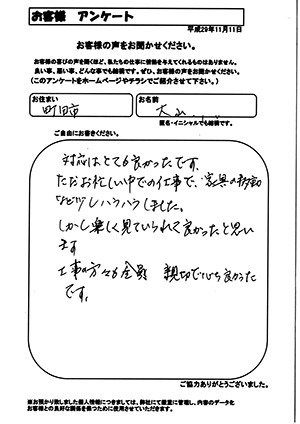 お客様 アンケート
平成29年11月11日
お客様の声をお聞かせください。
お客様の喜びの声を聞くほど、私たちの仕事に情熱を与えてくれるものはありません。
良い事、悪い事、どんな事でも結構です。ぜひ、お客様の声をお聞かせください。
(このアンケートをホームページやチラシでご紹介させて下さい。)
お住まい
町田市
お名前
大山
匿名・イニシャルでも結構です。
ご自由にお書きください。
対応はとても良かったです。
ただお忙しい中での仕事で、家具の移動
など少しハラハラしました。
しかし楽しく見ていられて良かったと思い
ます
工事の方々も全員 親切で良かった
です。
ご協力ありがとうございました。
※お預かり致しました個人情報につきましては、弊社にて厳重に管理し、内容のデータ化
お客様との良好な関係を築くために使用させていただきます。